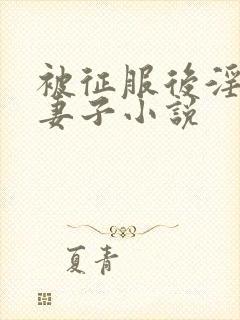 被征服後淫
妻子小説
夏青